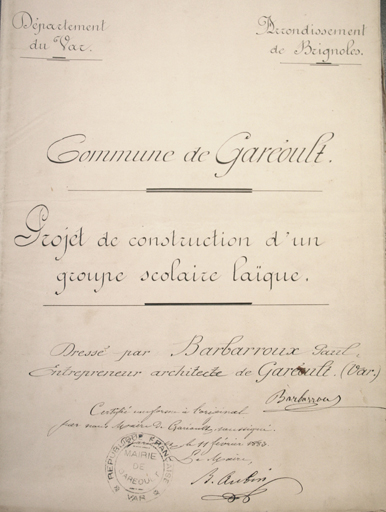 Département
du Var.
Arrondissement
de Brignoles.
Commune de Garéoult.
Projet de construction d'un
groupe scolaire laïque.
Dressé par Barbarroux Paul.
Entrepreneur architecte de Garéoult. (Var.)
Barbarroux
Certifié conforme à l'original
par nous Maire de Garéoult, soussigné.
le 11 février 1883
Le Maire,
B. Aubin
RÉPUBLIQUE FRANÇAISE
MAIRIE
DE
GAREOULT
VAR